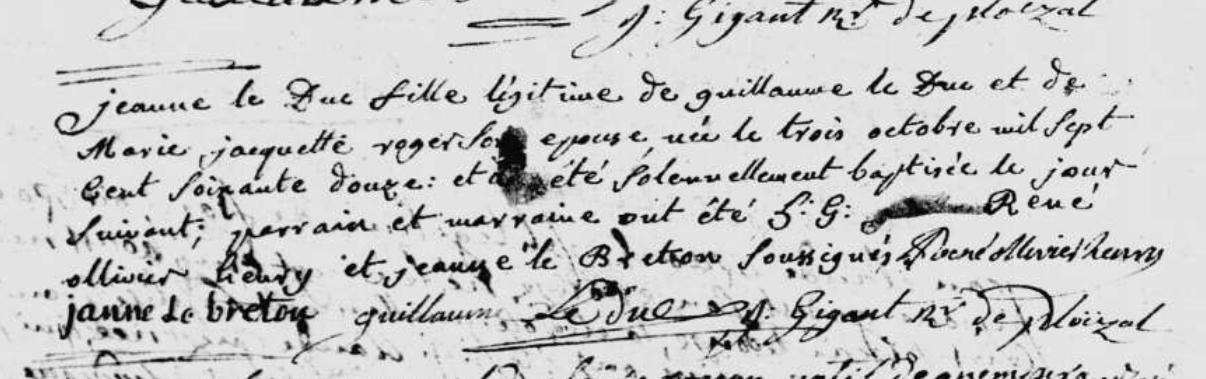 J: Gigant Rr de ploëzal
jeanne le Duc fille légitime de guillaume le Duc et de
Marie jacquette roger son epouse, née le trois octobre mil sept
Cent soixante douze: et a été solennellement baptisée le jour
suivant; parrain et marraine ont été René
ollivier heury et jeanne le Breton soussignés René ollivier heury
janne le breton guillaume Le duc J: Gigant Rr de ploizal